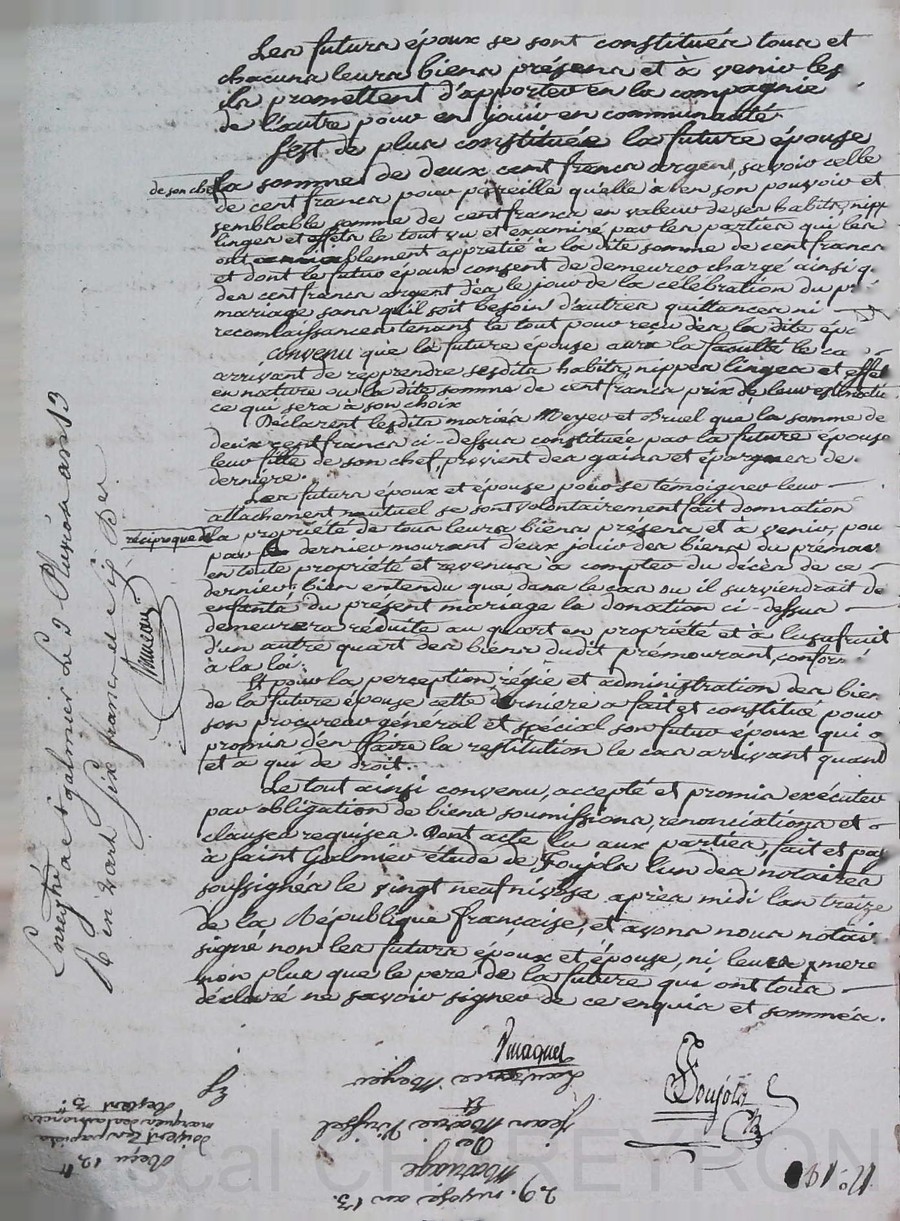 Les futurs époux se sont constitués tous et
chacuns leurs biens présens et à venir les
ils promettent d'apporter en la compagnie
de l'autre pour en jouir en communauté.
S'est de plus constituée la future épouse
de son chef la somme de deux cent francs argent, savoir celle
de cent francs pour pareille qu'elle a en son pouvoir et
semblable somme de cent francs en valeur de ses habits, nipp
linges et effets le tout vu et examiné par les parties qui les
ont amiablement apprétié à la dite somme de cent francs
et dont le futur époux consent de demeurer chargé ainsi q.
des cent francs argent dès le jour de la célébration du p
mariage sans qu'il soit besoin d'autres quittances ni
reconnaissances tenant le tout pour reçu dès la dite épo
convenu que la future épouse aura la faculté le ca
arrivant de reprendre sesdits habits, nippes linges et effet
en nature ou la dite somme de cent francs prix de leur estimatio
ce qui sera à son choix
Déclarent lesdits mariés Meyer et Bruel que la somme de
deux cent francs ci-dessus constituée par la future épouse
leur fille de son chef, provient des gains et épargnes de
dernière.
Les futurs époux et épouse pour se témoigner leur
attachement mutuel se sont volontairement fait donnation
réciproque de la propriété de tous leurs biens présens et à venir, pou
par le dernier mourant d'eux jouir des biens du prémou
en toute propriété et revenus à compter du décès de ce
dernier, bien entendu que dans le cas ou il surviendroit de
enfants du présent mariage la donation ci-dessus
demeurera réduite au quart en propriété et à l'usufruit
d'un autre quart des biens dudit prémourant, conform
à la loi.
Et pour la perception, régie et administration des bien
de la future épouse cette dernière a fait et constitué pour
son procureur général et spécial son futur époux qui a
promis d'en faire la restitution le cas arrivant quand
et à qui de droit.
Le tout ainsi convenu, accepté et promis exécuter
par obligation de biens soumissions, renonciations et
clauses requises. Dont acte lu aux parties, fait et pas
à saint Galmier étude de Soujols l'un des notaires
soussignés le vingt neuf nivose après midi l'an treize
de la République française, et avons nous notair
signé non les futurs époux et épouse, ni leurs mere
non plus que le pere de la future qui ont tous
déclaré ne savoir signer de ce enquis et sommés.
Enregistré a St galmier le 9 Pluviose an 13
Soujols
29. nivose an 13.
Mariage
De
Jean Marie
&
Laurence Meyer
Reçu 12